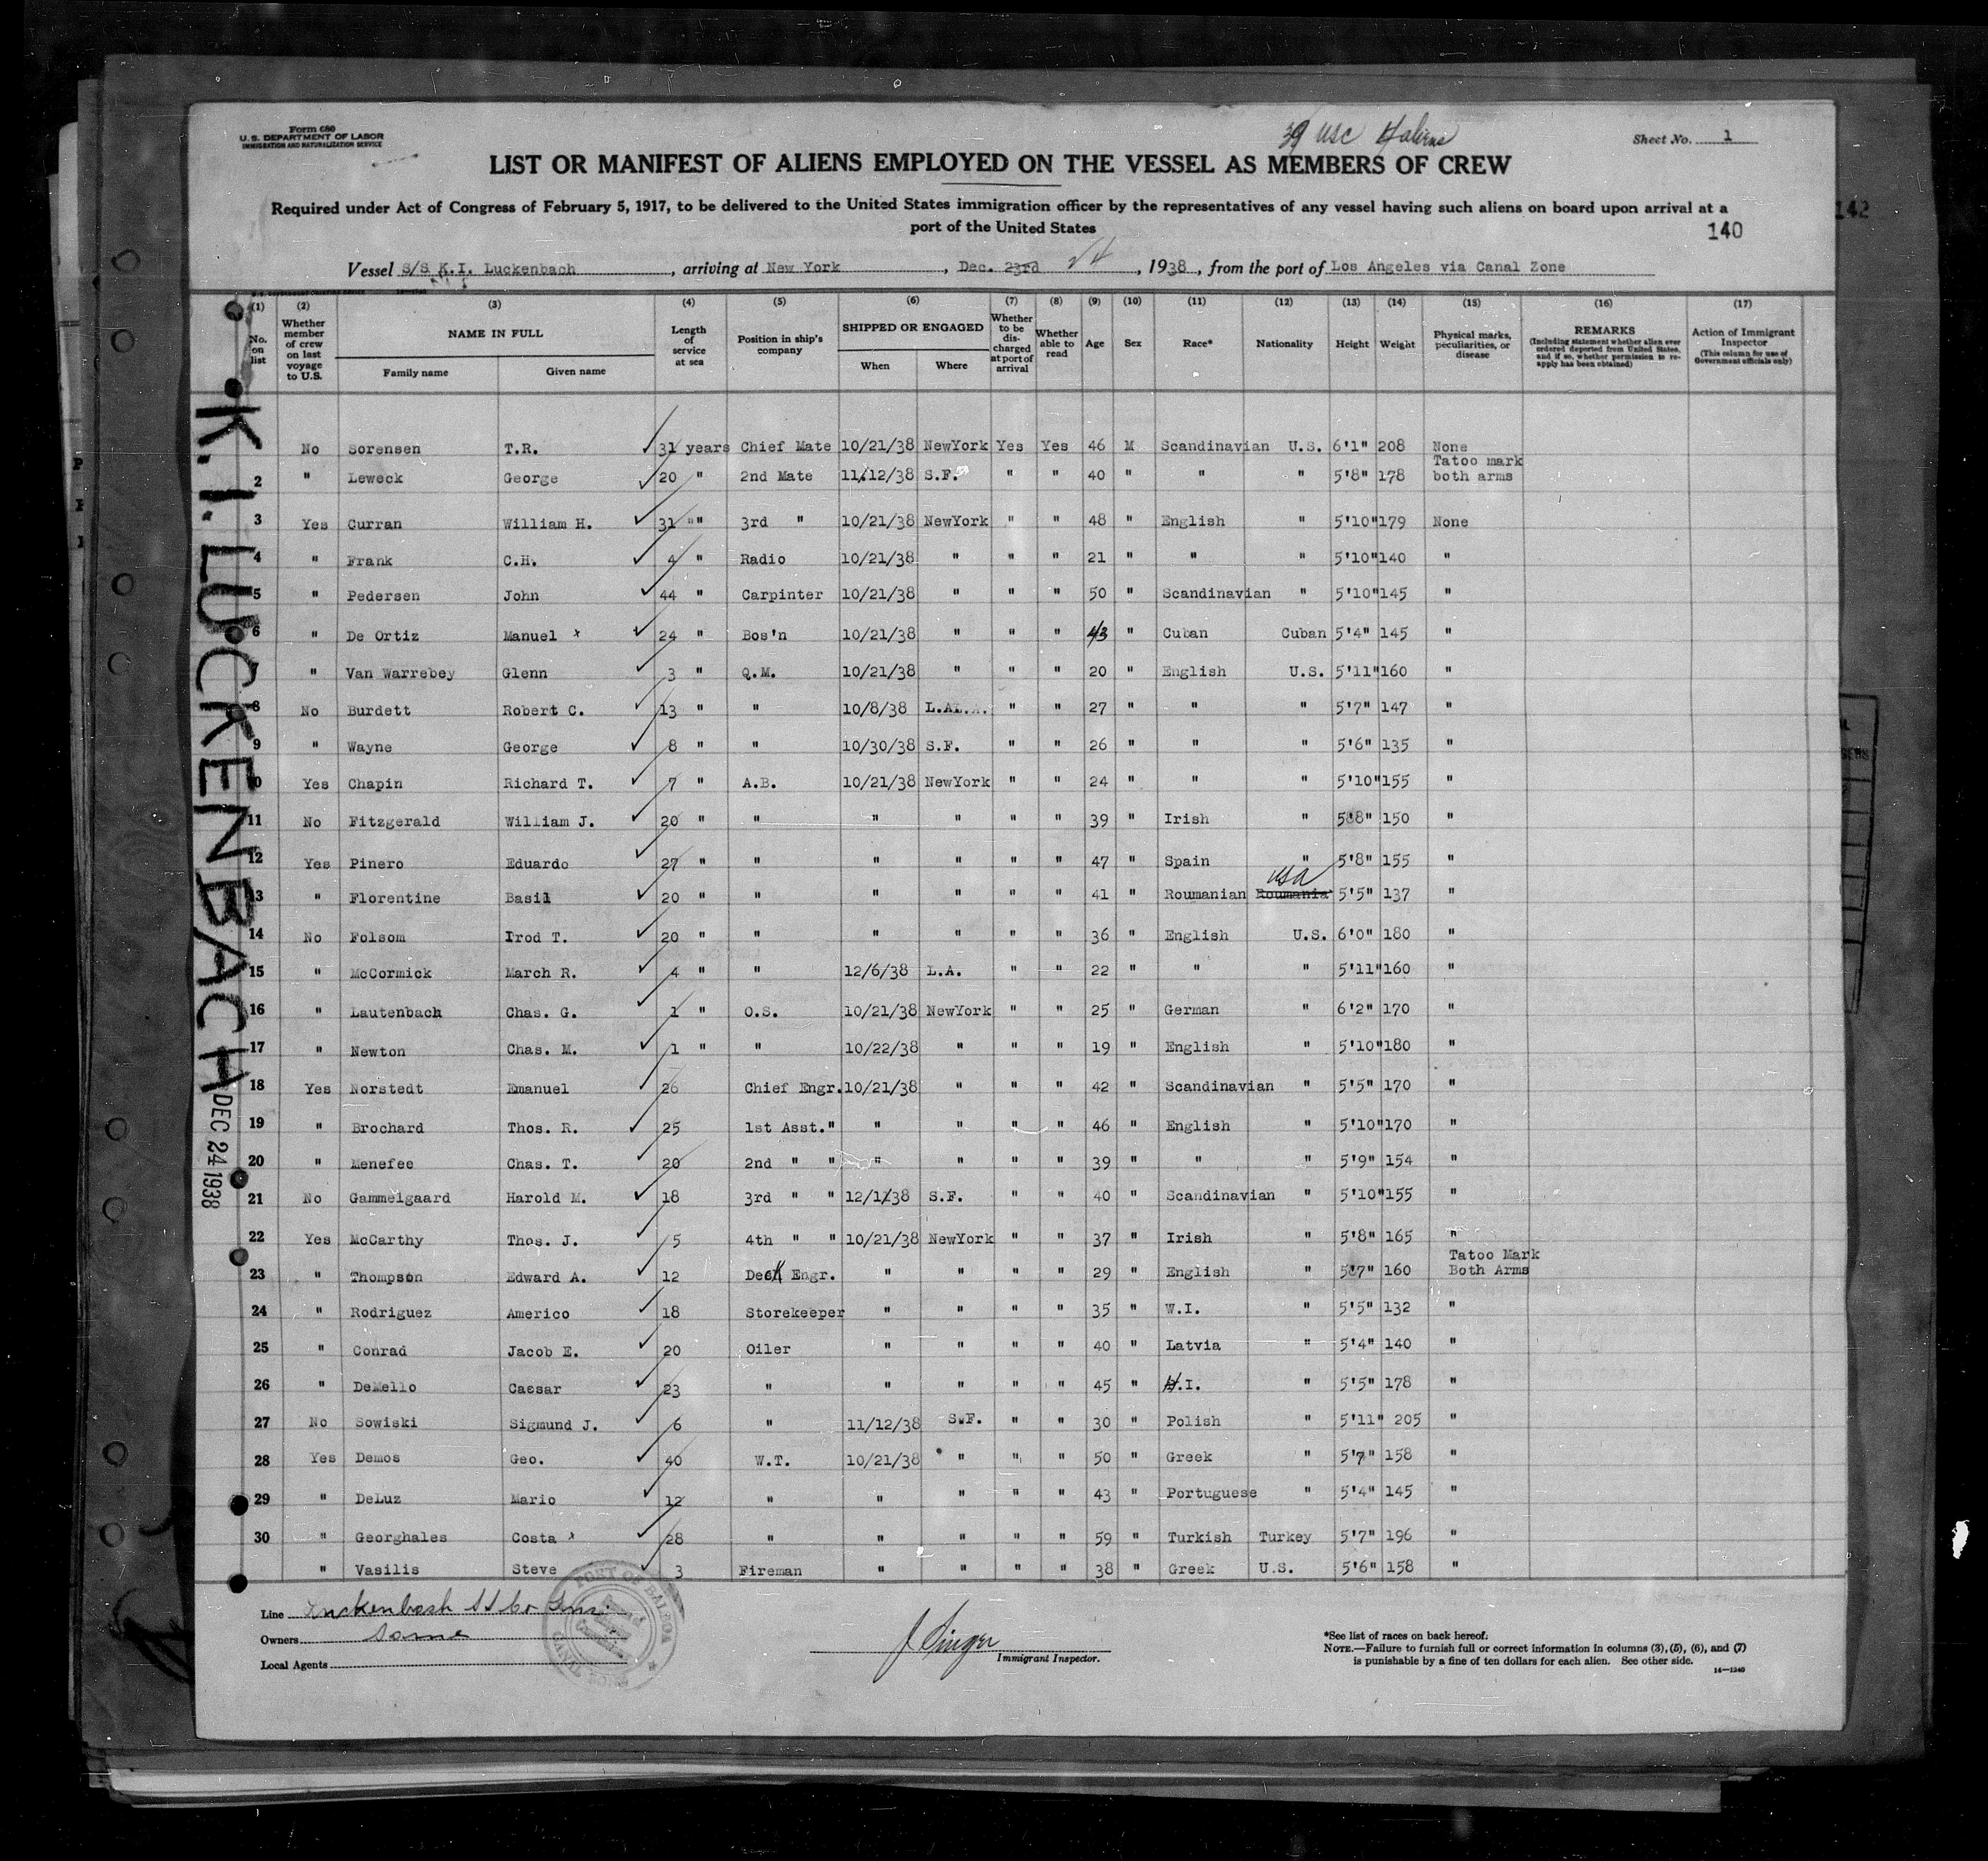 Form 680
U.S. DEPARTMENT OF LABOR
IMMIGRATION AND NATURALIZATION SERVICE
39 USC 4 aliens
Sheet No. 1
LIST OR MANIFEST OF ALIENS EMPLOYED ON THE VESSEL AS MEMBERS OF CREW
Required under Act of Congress of February 5, 1917, to be delivered to the United States immigration officer by the representatives of any vessel having such aliens on board upon arrival at a
port of the United States
140
142
Vessel S/S K.I. Luckenbach, arriving at New York, Dec. 23rd 24, 1938, from the port of Los Angeles via Canal Zone
(1) (2) (3) (4) (5) (6) (7) (8) (9) (10) (11) (12) (13) (14) (15) (16) (17)
No. on list
Whether member of crew on last voyage to U.S.
NAME IN FULL
Family name
Given name
Length of service at sea
Position in ship's company
SHIPPED OR ENGAGED
When
Where
Whether to be discharged at port of arrival
Whether able to read
Age
Sex
Race*
Nationality
Height
Weight
Physical marks, peculiarities, or disease
REMARKS
(Including statement whether alien ever ordered deported from United States, and if so, whether permission to reapply has been obtained)
Action of Immigrant Inspector
(This column for use of Government officials only)
No Sorensen T.R. 31 years Chief Mate 10/21/38 NewYork Yes Yes 46 M Scandinavian U.S. 6'1" 208 None
2 " Leweck George 20 " 2nd Mate 11/12/38 S.F. " " 40 " " " 5'8" 178 Tatoo mark both arms
3 Yes Curran William H. 31 "" 3rd " 10/21/38 NewYork " " 48 " English " 5'10" 179 None
4 " Frank C.H. 4 " Radio 10/21/38 " " " 21 " " " 5'10" 140 "
5 " Pedersen John 44 " Carpinter 10/21/38 " " " 50 " Scandinavian " 5'10" 145 "
6 " De Ortiz Manuel x 24 " Bos'n 10/21/38 " " " 43 " Cuban Cuban 5'4" 145 "
7 " Van Warrebey Glenn 3 " Q.M. 10/21/38 " " " 20 " English U.S. 5'11" 160 "
8 No Burdett Robert C. 13 " " 10/8/38 L.AL.A. " " 27 " " " 5'7" 147 "
9 " Wayne George 8 " " 10/30/38 S.F. " " 26 " " " 5'6" 135 "
10 Yes Chapin Richard T. 7 " A.B. 10/21/38 NewYork " " 24 " " " 5'10" 155 "
11 No Fitzgerald William J. 20 " " " " " " 39 " Irish " 5'8" 150 "
12 Yes Pinero Eduardo 27 " " " " " " 47 " Spain " 5'8" 155 "
13 " Florentine Basil 20 " " " " " " 41 " Roumanian Roumania USA 5'5" 137 "
14 No Folsom Irod T. 20 " " " " " " 36 " English U.S. 6'0" 180 "
15 " McCormick March R. 4 " " 12/6/38 L.A. " " 22 " " " 5'11" 160 "
16 " Lautenbach Chas. G. 1 " O.S. 10/21/38 NewYork " " 25 " German " 6'2" 170 "
17 " Newton Chas. M. 1 " " 10/22/38 " " " 19 " English " 5'10" 180 "
18 Yes Norstedt Emanuel 26 Chief Engr. 10/21/38 " " " 42 " Scandinavian " 5'5" 170 "
19 " Brochard Thos. R. 25 1st Asst. " " " " " 46 " English " 5'10" 170 "
20 " Menefee Chas. T. 20 2nd " " " " " " 39 " " " 5'9" 154 "
21 No Gammelgaard Harold M. 18 3rd " " 12/1/38 S.F. " " 40 " Scandinavian " 5'10" 155 "
22 Yes McCarthy Thos. J. 5 4th " " 10/21/38 NewYork " " 37 " Irish " 5'8" 165 "
23 " Thompson Edward A. 12 Deck Engr. " " " " 29 " English " 5'7" 160 Tatoo Mark Both Arms
24 " Rodriguez Americo 18 Storekeeper " " " " 35 " W.I. " 5'5" 132 "
25 " Conrad Jacob E. 20 Oiler " " " " 40 " Latvia " 5'4" 140 "
26 " DeMello Caesar 23 " " " " " 45 " H.I. " 5'5" 178 "
27 No Sowiski Sigmund J. 6 " 11/12/38 S.F. " " 30 " Polish " 5'11" 205 "
28 Yes Demos Geo. 40 W.T. 10/21/38 " " " 50 " Greek " 5'7" 158 "
29 " DeLuz Mario 12 " " " " " 43 " Portuguese " 5'4" 145 "
30 " Georghales Costa x 28 " " " " " 59 " Turkish Turkey 5'7" 196 "
" Vasilis Steve 3 Fireman " " " " 38 " Greek U.S. 5'6" 158 "
K.I. LUCKENBACH
DEC 24 1938
Line Luckenbach SS Co
Owners Same
Local Agents
PORT OF BALBOA
J Singer
Immigrant Inspector.
*See list of races on back hereof.
NOTE.—Failure to furnish full or correct information in columns (3), (5), (6), and (7)
is punishable by a fine of ten dollars for each alien. See other side.
14—1240